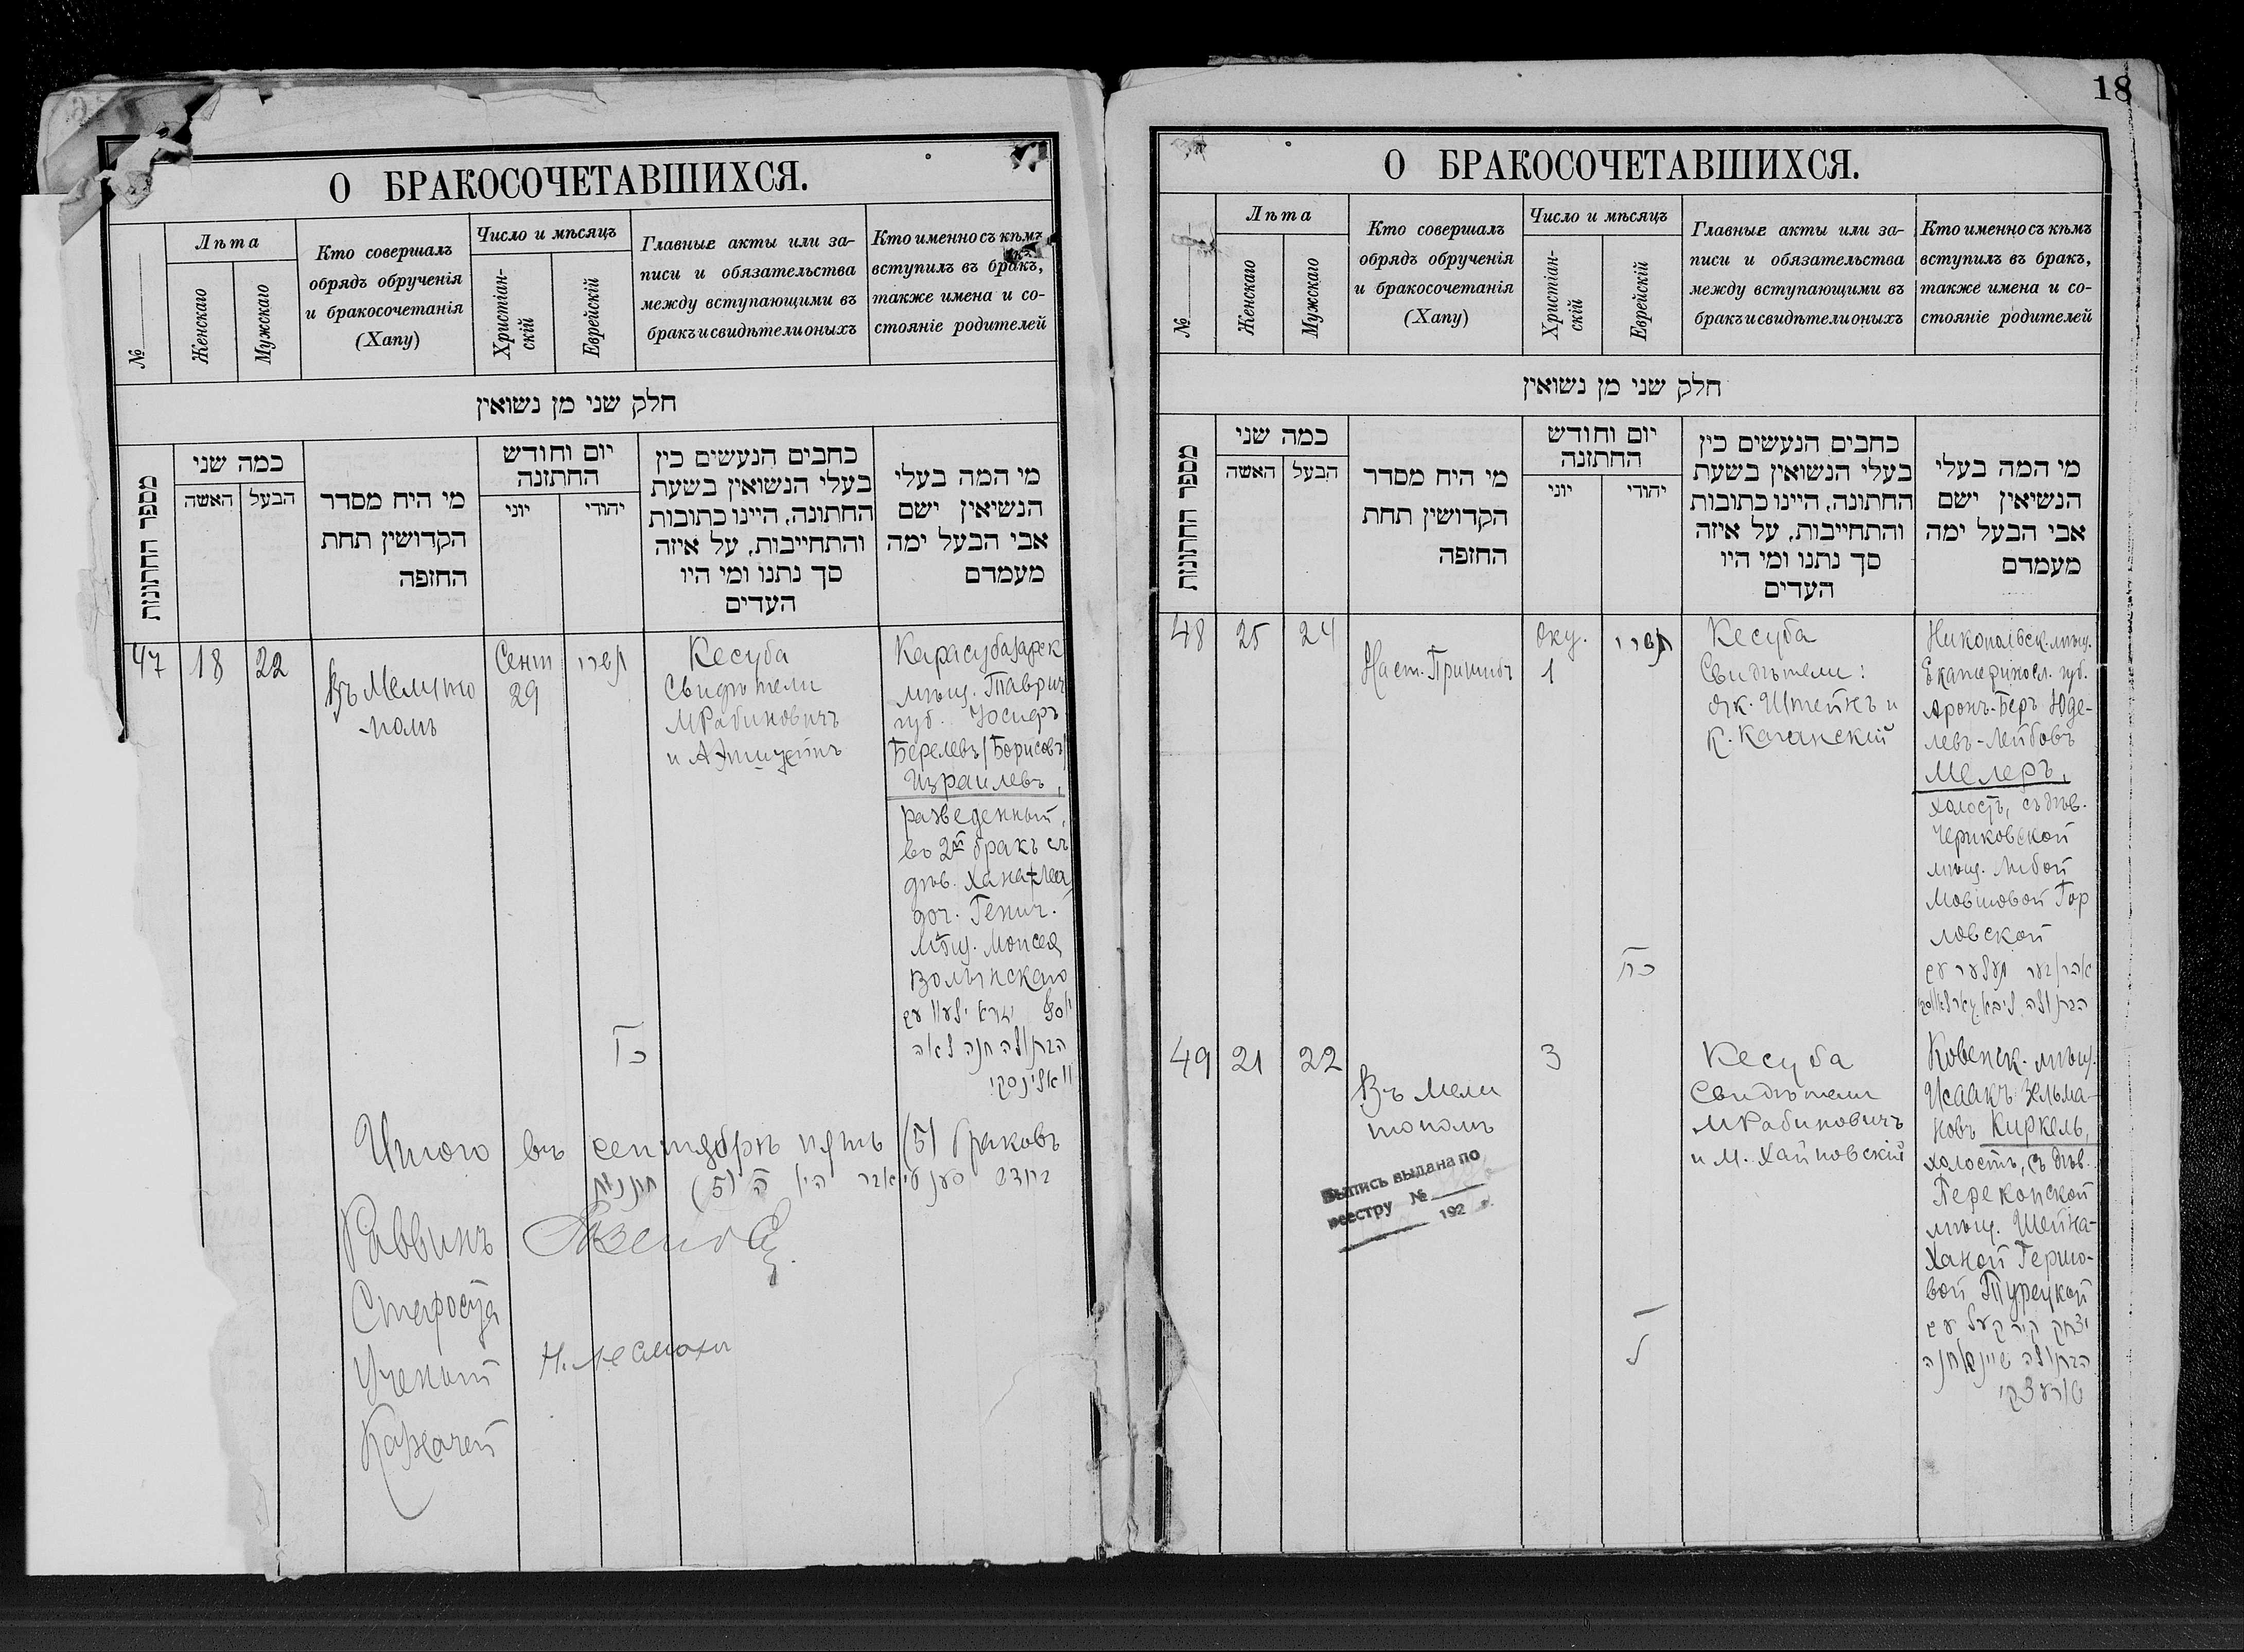 18
О БРАКОСОЧЕТАВШИХСЯ.
№
Лѣта
Женскаго
Мужскаго
Кто совершалъ
обрядъ обрученія
и бракосочетанія
(Хапу)
Число и мѣсяцъ
Христіан-
скій
Еврейскій
Главные акты или за-
писи и обязательства
между вступающими въ
бракъ и свидѣтели оныхъ
Кто именно съ кѣмъ
вступилъ въ бракъ,
также имена и со-
стояніе родителей
חלק שני מן נשואין
מספר החתונות
כמה שני
האשה
הבעל
מי היח מסדר
הקדושין תחת
החופה
יום וחודש
החתונה
יוני
יהודי
כתבים הנעשים בין
בעלי הנשואין בשעת
החתונה, היינו כתובות
והתחייבות, על איזה
סך נתנו ומי היו
העדים
מי המה בעלי
הנשיאין ישם
אבי הבעל ימה
מעמדם
47
18
22
Въ Мелито
полѣ
Сент
29
תשרי
כד
Кесуба
Свидѣтели
М Рабиновичъ
и А
Карасубазарск
мѣщ. Таврич
губ. Іосифъ
Берелевъ (Борисовъ)
Израилевъ,
разведенный,
во 2й бракъ съ
дѣв. Хана-Леа
доч. Генич.
Мѣщ. Моисея
Волынскаго
הבתולה חנה לאה
וואלינסקי
Итого въ сентябрѣ пять (5) браковъ
(5)
Раввинъ
Староста
Ученый
Казначей
О БРАКОСОЧЕТАВШИХСЯ.
№
Лѣта
Женскаго
Мужскаго
Кто совершалъ
обрядъ обрученія
и бракосочетанія
(Хапу)
Число и мѣсяцъ
Христіан-
скій
Еврейскій
Главные акты или за-
писи и обязательства
между вступающими въ
бракъ и свидѣтели оныхъ
Кто именно съ кѣмъ
вступилъ въ бракъ,
также имена и со-
стояніе родителей
חלק שני מן נשואין
מספר החתונות
כמה שני
האשה
הבעל
מי היח מסדר
הקדושין תחת
החופה
יום וחודש
החתונה
יוני
יהודי
כתבים הנעשים בין
בעלי הנשואין בשעת
החתונה, היינו כתובות
והתחייבות, על איזה
סך נתנו ומי היו
העדים
מי המה בעלי
הנשיאין ישם
אבי הבעל ימה
מעמדם
48
25
24
На ст. Пришибъ
Окт.
1
תשרי
Кесуба
Свидѣтели:
Як. Штейнъ и
К. Каганскій
Никопольск. мѣщ.
Екатериносл. губ.
Аронъ-Беръ Юде-
левъ-Лейбовъ
Мелеръ,
холостъ, съ дѣв.
Чериковской
мѣщ. Либой
Мовшовой Гор
ловской
49
21
22
Въ Мели
тополѣ
Выпись выдана по
реестру №
192
3
ל
Кесуба
Свидѣтели
М Рабиновичъ
и М. Хайновскій
Ковенск. мѣщ.
Исаакъ Зельма-
новъ Киркель,
холостъ, съ дѣв.
Перекопской
мѣщ. Шейна-
Ханой Гершо-
вой Турецкой
יצחק קירקעל עם
הבתולה שיינע חנה
טורעצקי